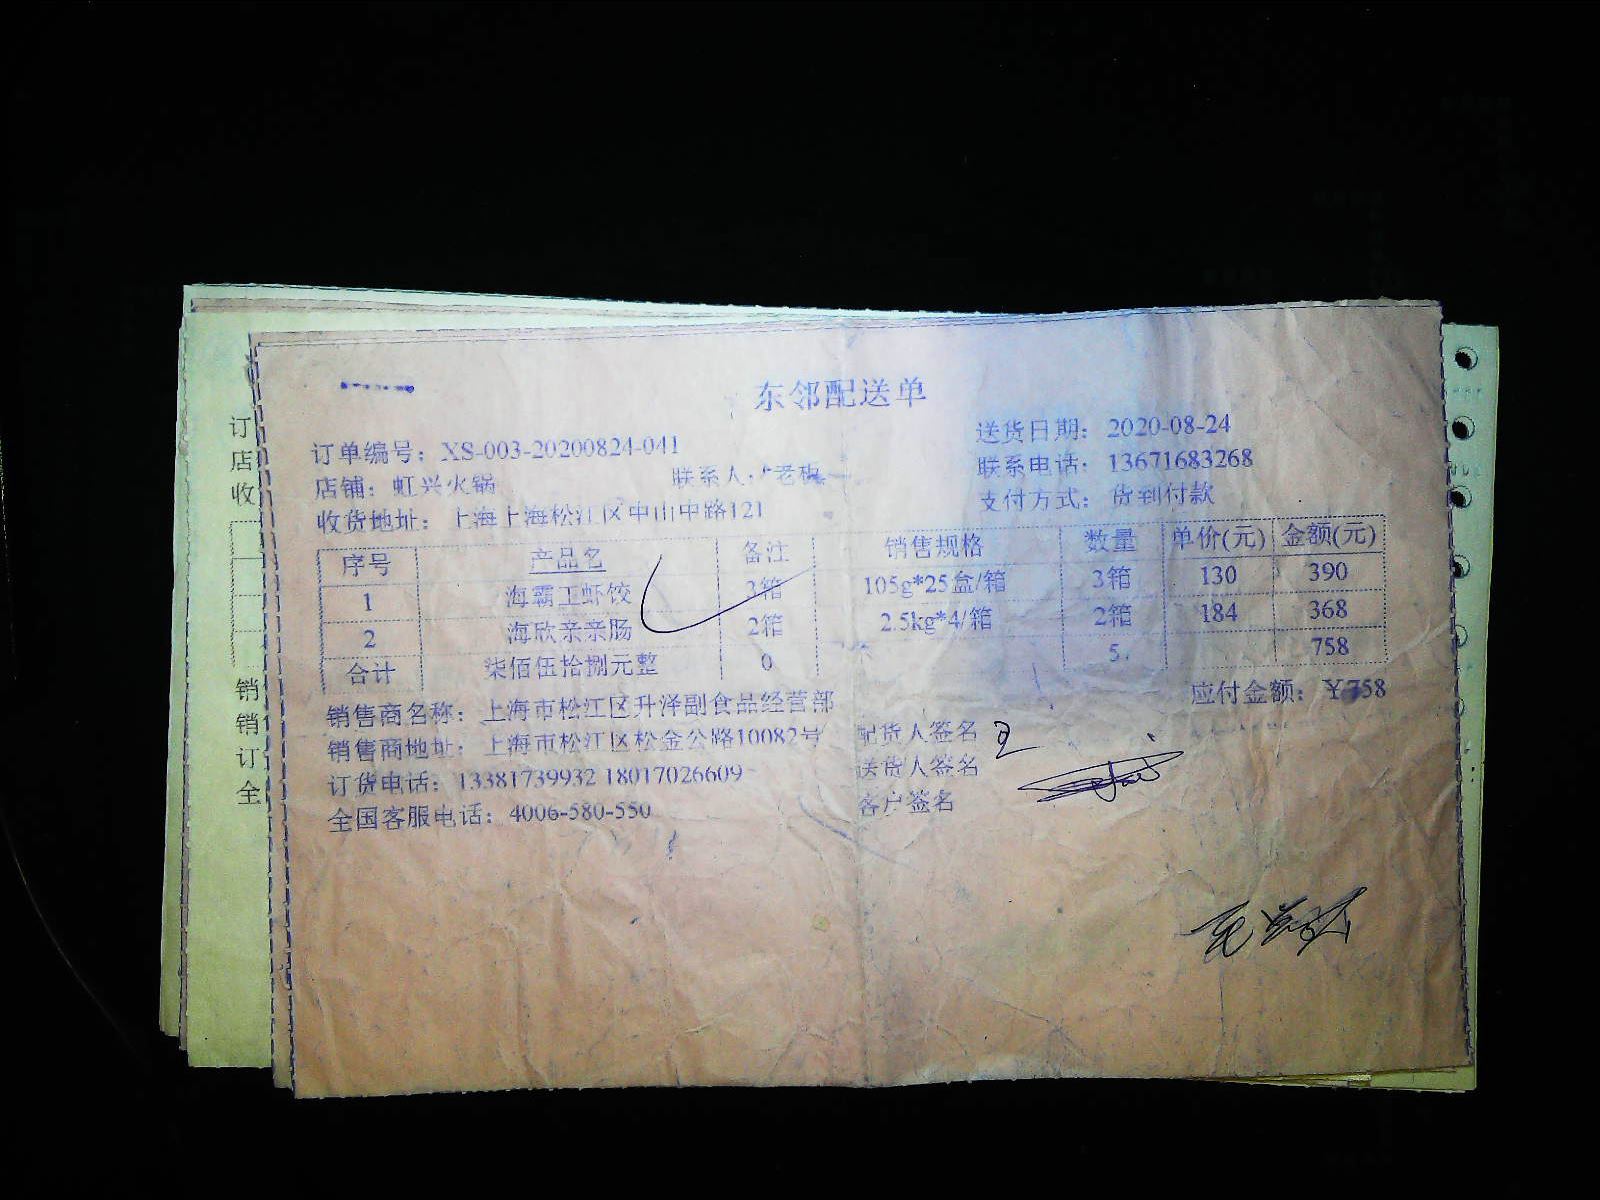 东邻配送单
订单编号：XS-003-20200824-041 送货日期：2020-08-24
店铺：虹兴火锅 联系人： 联系电话：13671683268
收货地址：上海上海松江区中山中路121 支付方式：货到付款
序号 产品名 备注 销售规格 数量 单价(元) 金额(元)
1 海霸王虾饺 3箱 105g*25盒/箱 3箱 130 390
2 海欣亲亲肠 2箱 2.5kg*4/箱 2箱 184 368
合计 柒佰伍拾捌元整 0 5. 758
销售商名称：上海市松江区升泽副食品经营部 应付金额：￥758
销售商地址：上海市松江区松金公路10082号 配货人签名
订货电话：13381739932 18017026609 送货人签名
全国客服电话：4006-580-550 客户签名
订
店
收
销
销
订
全